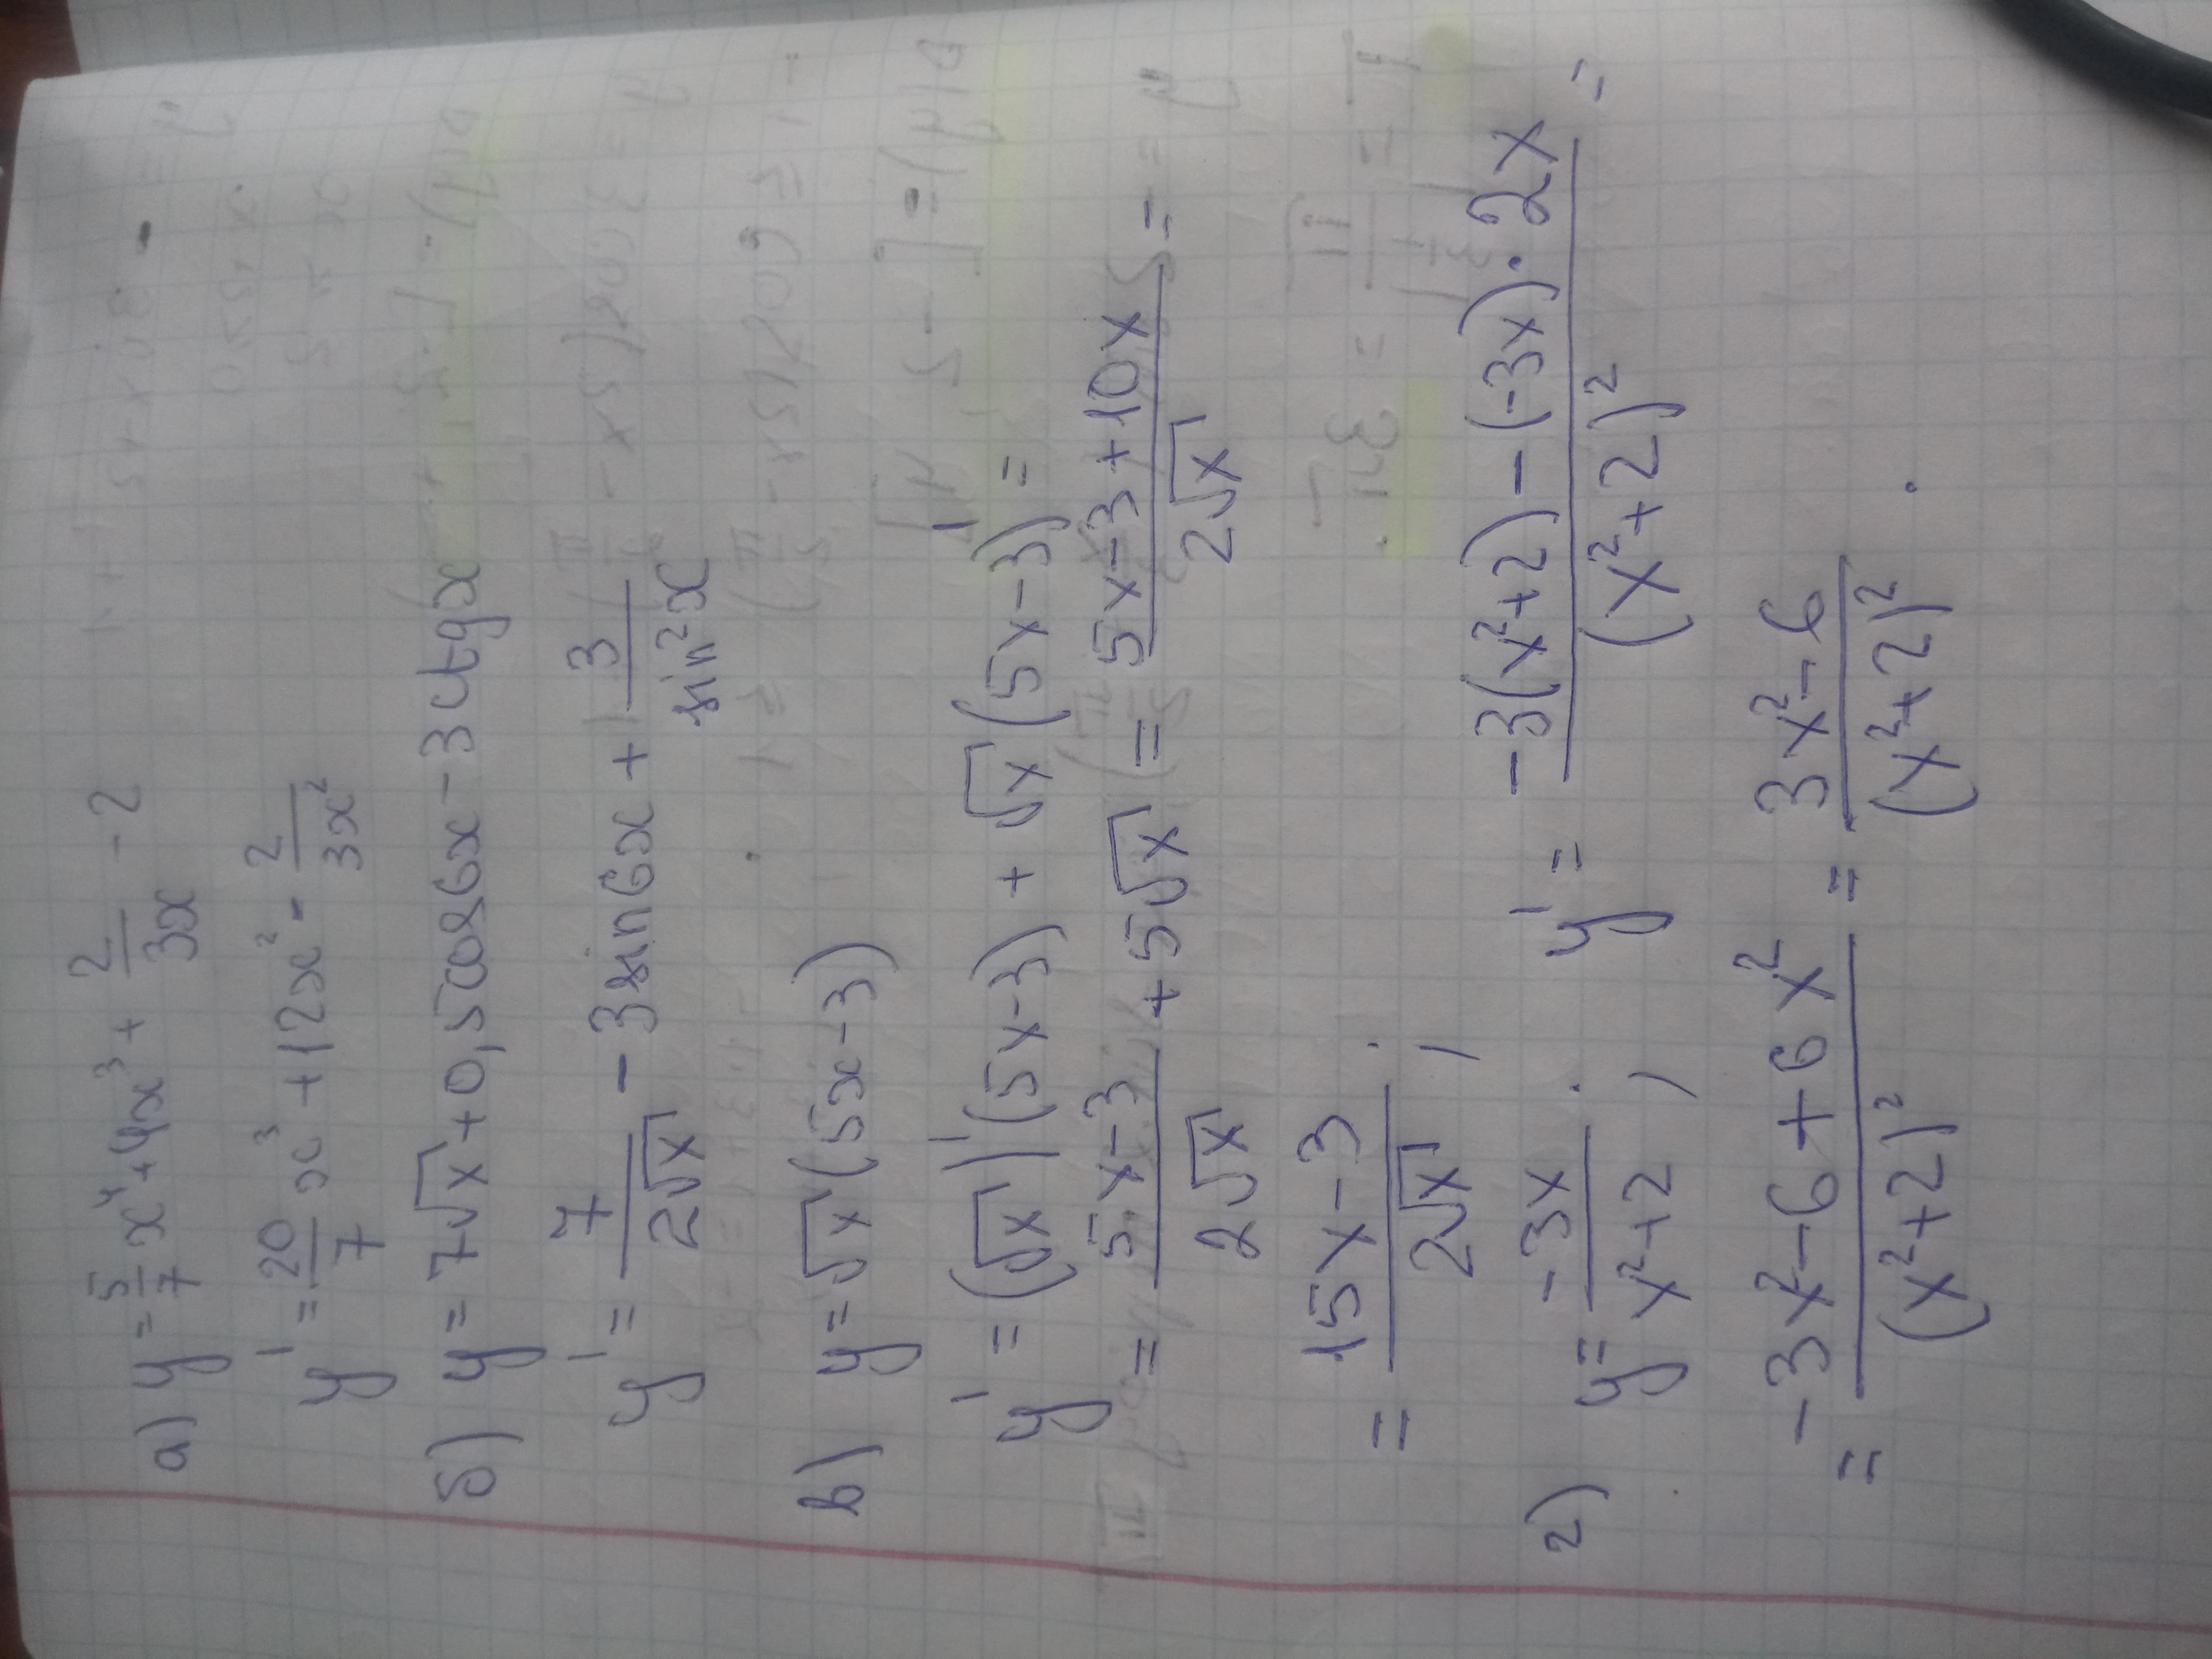 а) y = 5/7 x⁴ + 4x³ + 2/3x - 2
y' = 20/7 x³ + 12x² - 2/3x²
б) y = 7√x + 0,5cos6x - 3ctgx
y' = 7/2√x - 3sin6x + 3/sin²x
в) y = √x (5x-3)
y' = (√x)' (5x-3) + √x (5x-3)' =
= 5x-3/2√x + 5√x = 5x-3+10x/2√x =
= 15x-3/2√x ;
г) y = -3x/x²+2 ; y' = -3(x²+2) - (-3x)·2x/(x²+2)² =
= -3x²-6+6x²/(x²+2)² = 3x²-6/(x²+2)² .